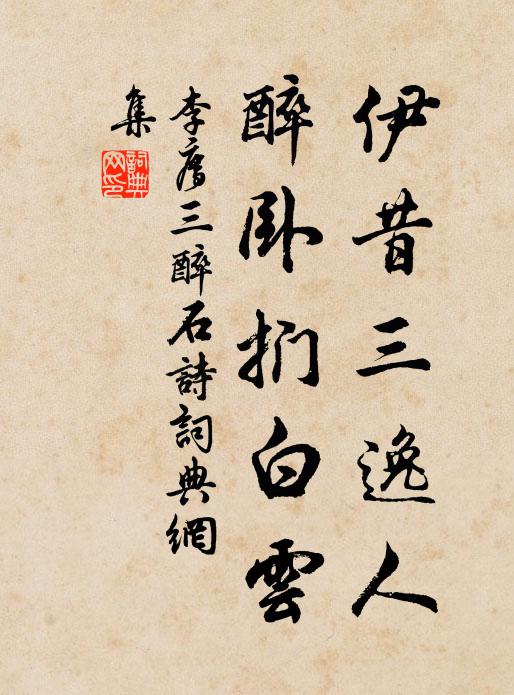 伊昔三逸人
醉卧捫白雲
李廌三醉石詩詞典網
集
詞典网印